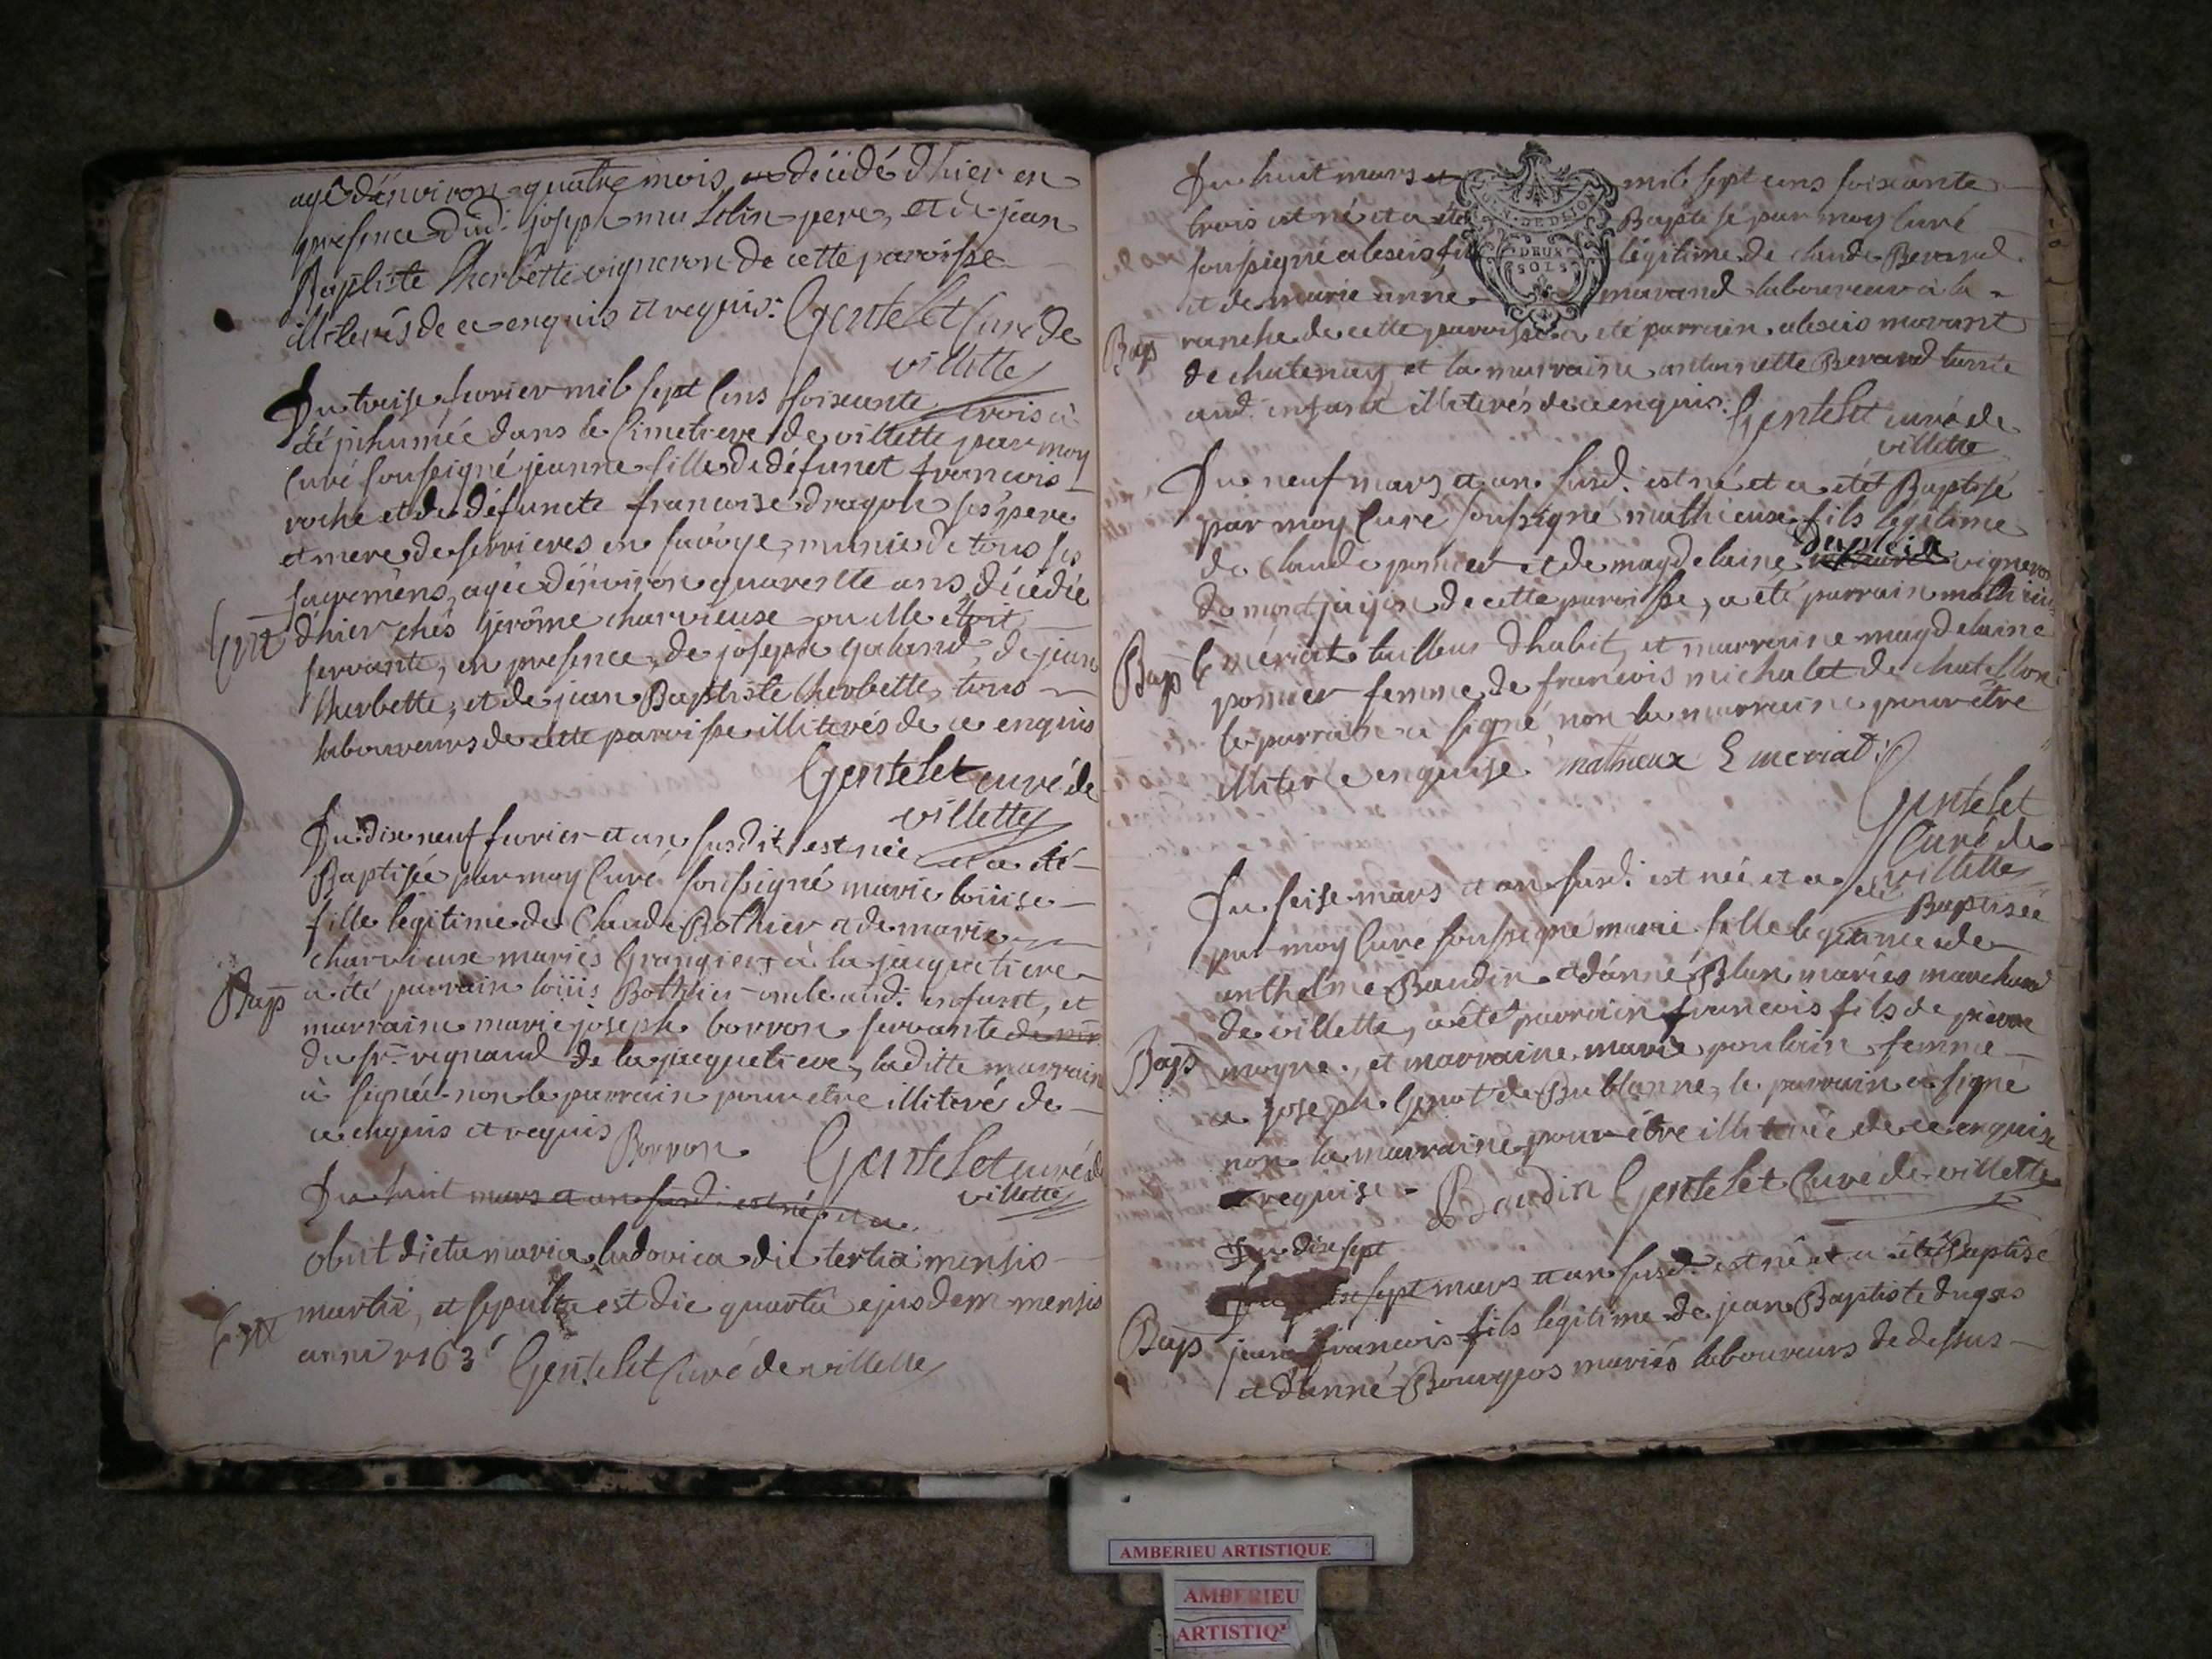 agé d'environ quatre mois décédé d'hier en
presence dud. joseph mu pere, et de jean
Baptiste Cherbette vigneron de cette paroisse
illiterés de ce enquis et requis. Gentelet Curé de
villette
Du treise fevrier mil sept Cens soixante trois à
été inhumée dans le Cimetiere de villette par moy
Curé soussigné jeanne fille de défunct francois
roche et de défuncte francoise dragon ses pere
et mere de serrieres en savoye, munie de tous ses
sacremens, agée d'environ quarente ans, décédée
Ent d'hier chés jerôme charvieuse ou elle etoit
servante, en presence, de joseph galand, de jean
Cherbette, et de jean Baptiste Cherbette, tous
laboureurs de cette paroisse illiterés de ce enquis
Gentelet curé de
villette
Du dixneuf fevrier et an susdit est née et a été
Baptisée par moy Curé soussigné marie loüise
fille legitime de Claude Bothier et de marie
charvieuse mariés Grangiers à la jacquetiere
Bap a été parrain loüis Bothier oncle aud. enfant, et
marraine marie joseph borron servante de mr
du sr. regnaud de la jacquetiere, laditte marraine
à signée non le parrain pour etre illiteré de
ce enquis et requis Borron Gentelet curé de
villette
Du huit mars et an susd. est né et a
obiit dicta maria ludovica die tertia mensis
martii, et sepulta est die quartâ ejusdem mensis
Ent
anni 1763 Gentelet Curé de villette
Du huit mars et mil sept cens soixante
trois est né et a été Baptisé par moy Curé
soussigné alexis fils légitime de claude Berand
et de marie anne marand laboureur à la
Bap ranche de cette paroisse a eté parrain alexis marant
de chatenay et la marraine antoinette Berand tante
aud. enfant illiterés de ce enquis. Gentelet curé de
villette
Du neuf mars et an susd. est né et a été Baptisé
par moy Curé soussigné mathieux fils légitime
de Claude pomier et de magdelaine duplein vigneron
du mont de cette paroisse, a été parrain mathieu
Bap meriat tailleur d'habit, et marraine magdelaine
pomier femme de francois michalet de chatillon
le parrain a signé non la marraine pour être
illiterée enquise. mathieux Emeriat
Gentelet
Curé de
villette
Du seise mars et an susd. est née et a été Baptisée
par moy Curé soussigné marie fille legitime de
anthelme Baudin et d'anne Blan mariés marchand
de villette, a été parrain francois fils de pierre
Bap moyne, et marraine marie poulain femme
a joseph Genot de Bublanne, le parrain a signé
non la marraine pour être illiterée de ce enquise
requise. Baudin Gentelet Curé de villette
Du dixsept
sept mars et an susd. est né et a été Baptisé
Bap jean francois fils légitime de jean Baptiste dugas
et d'anne Bourgeos mariés laboureurs de dessus
GEN. DE DIJON
DEUX
SOLS
AMBERIEU ARTISTIQUE
AMBERIEU
ARTISTIQ